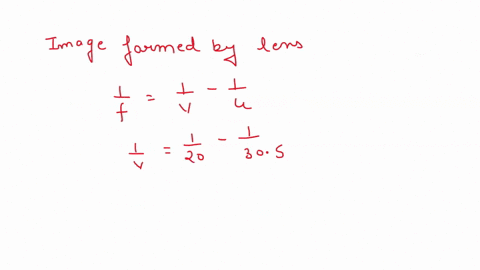 Image formed by lens
1/f = 1/v - 1/u
1/v = 1/20 - 1/30.5